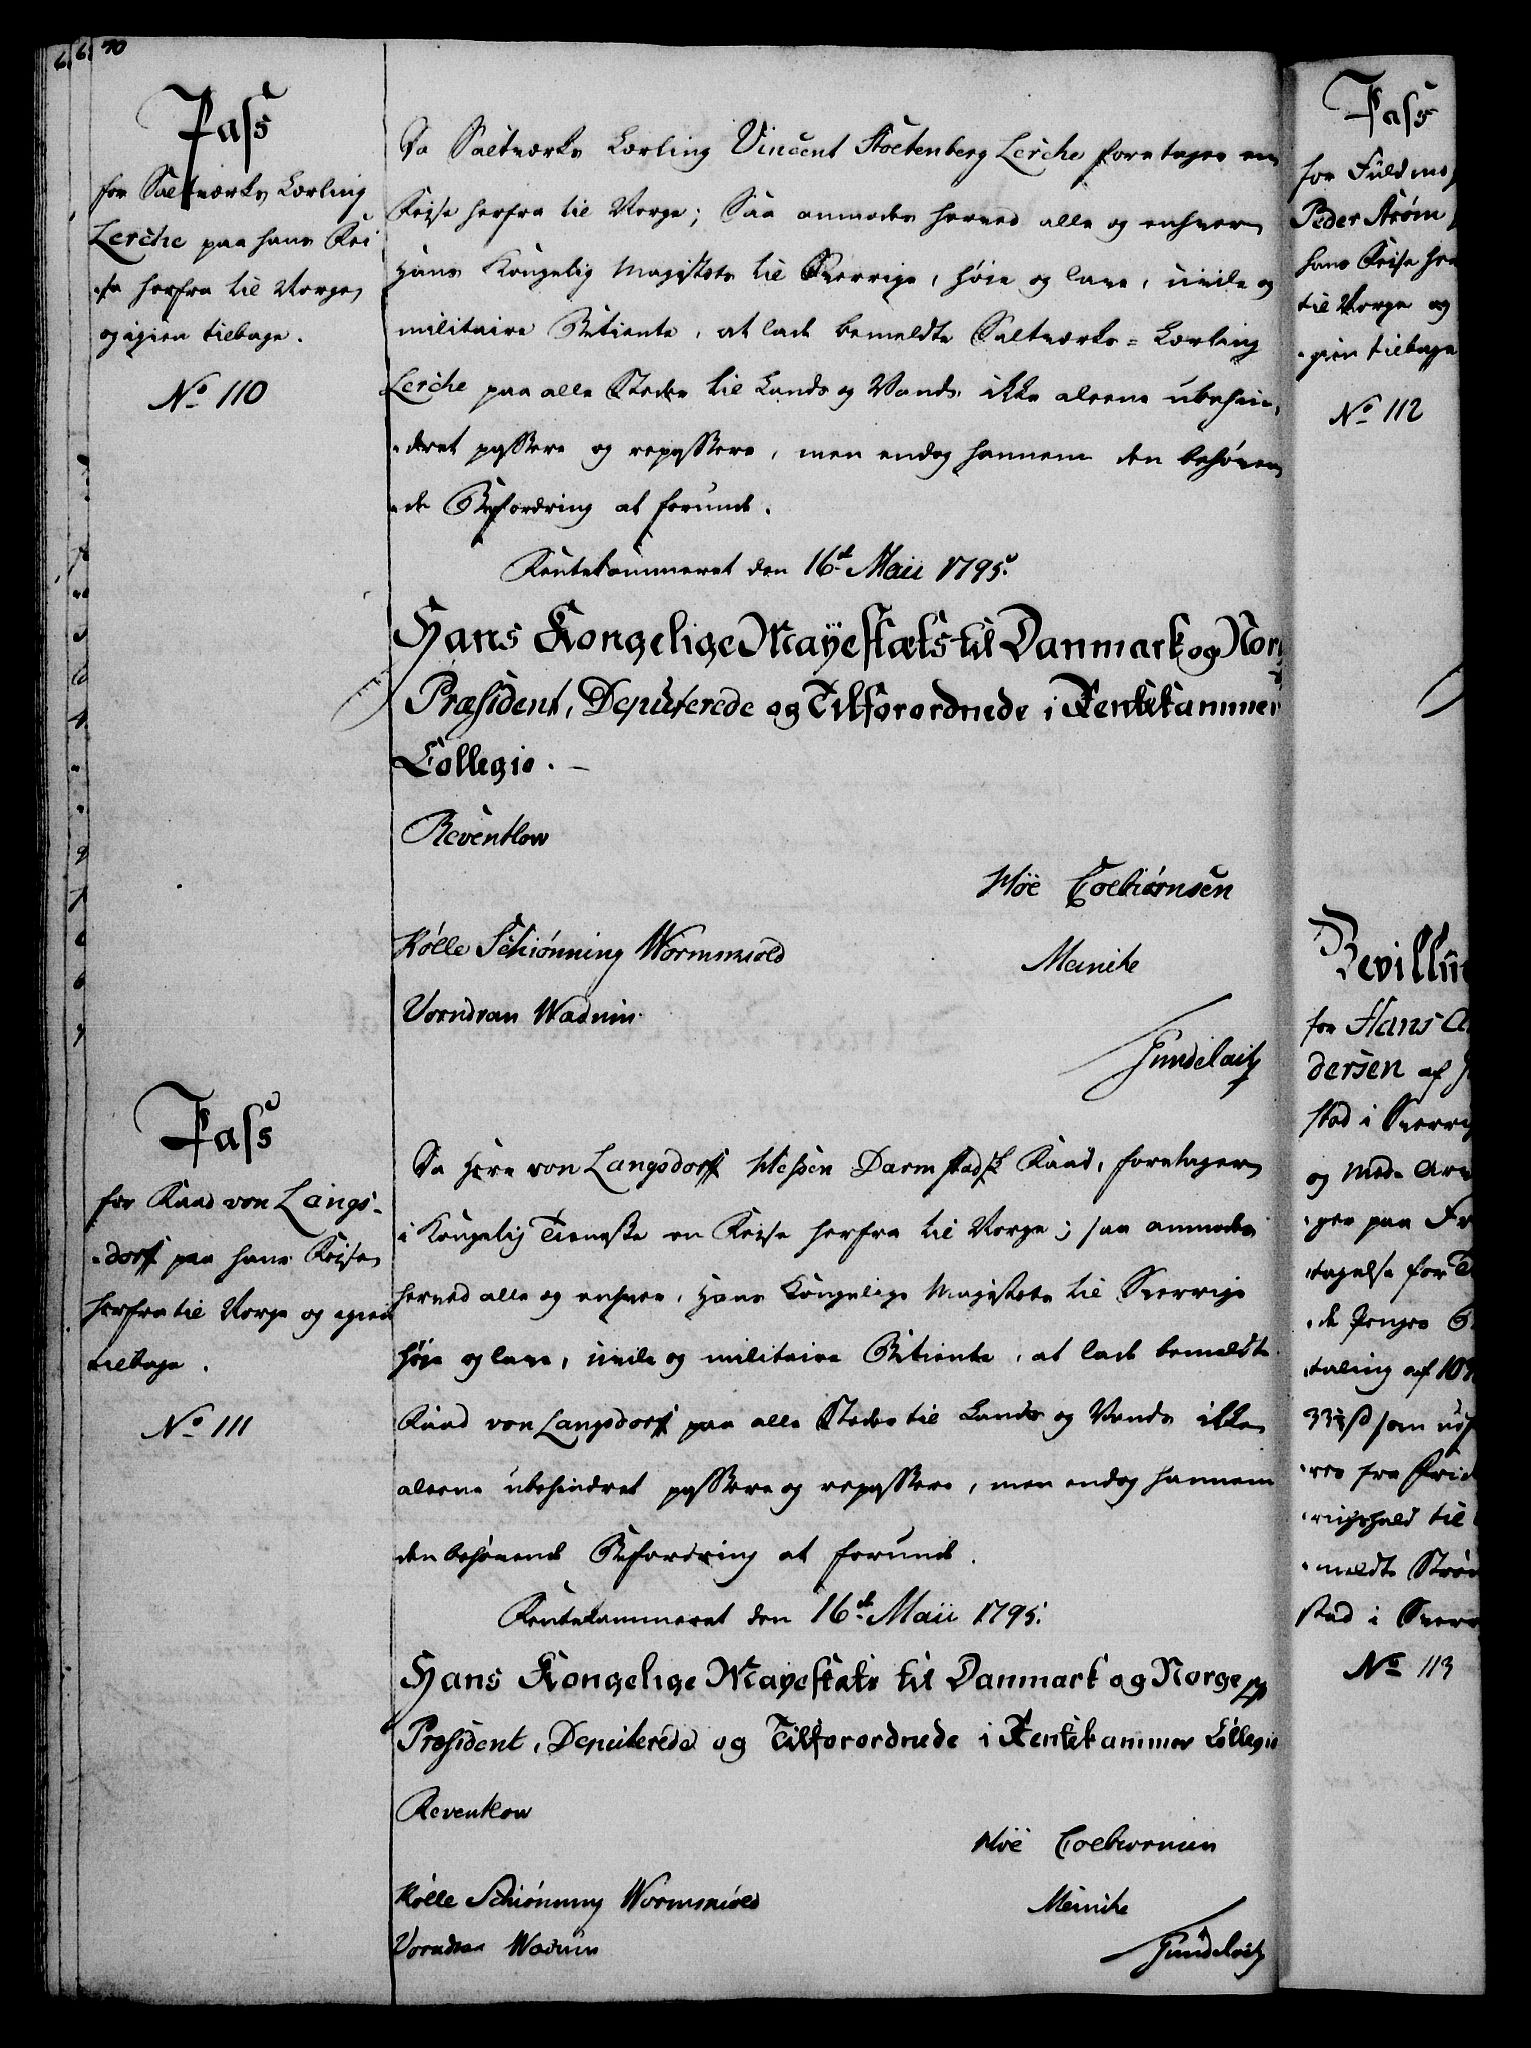 70
Pass
for Saltværks Lærling
Lerche paa hans Rei
-se herfra til Norge,
og igien tilbage.
No 110
Da Saltværks Lærling Vincent Stoltenberg Lerche foretager en
Reise herfra til Norge; Saa anmodes herved alle og enhver
Hans Kongelig Majestets til Sverrige, høie og lave, civile og
militaire Betiente, at lade bemeldte Saltværks-Lærling
Lerche paa alle Steder til Lands og Vands ikke aleene ubehin-
-dret passere og repassere, men endog hannem den behøven
-de Befordring at forunde.
Rentekammeret den 16de Maii 1795.
Hans Kongelige Mayestæts til Danmark og Norg
Præsident, Deputerede og Tilforordnede i Rentekammer
Collegio.
Reventlow
Höe Colbiørnsen
Kølle Schiønning Wormskiold
Meinike
Vorndran Wadum
Gundelach
Pass
for Raad von Langs-
-dorff paa hans Reise
herfra til Norge og igien
tilbage.
No 111
Da Herr von Langsdorff Hessen Darmstadsk Raad, foretager
i Kongelig Tieneste en Reise herfra til Norge; saa anmodes
herved alle og enhver, Hans Kongelige Majestets til Sverrige
høie og lave, civile og militaire Betiente, at lade bemeldte
Raad von Langsdorff paa alle Steder til Lands og Vands ikke
aleene ubehindret passere og repassere, men endog hannem
den behøvende Befordring at forunde.
Rentekammeret den 16de Maii 1795.
Hans Kongelige Mayestæts til Danmark og Norge
Præsident, Deputerede og Tilforordnede i Rentekammer Collegio
Reventlow
Höe Colbiørnsen
Kølle Schiønning Wormskiold
Meinike
Vorndran Wadum
Gundelach
Pass
for Fuldmæ
Peder Strøm
hans Reise her
til Norge og
-gien tilbage
No 112
Bevilling
for Hans An
dersen af
stad i Sverrig
og Mads
-ger paa
-tagelse for
-de Penges
-taling af
33 1/3 ß som
-res fra Frid
-richshald til
-meldte Strøm
stad i Sverr
No 113